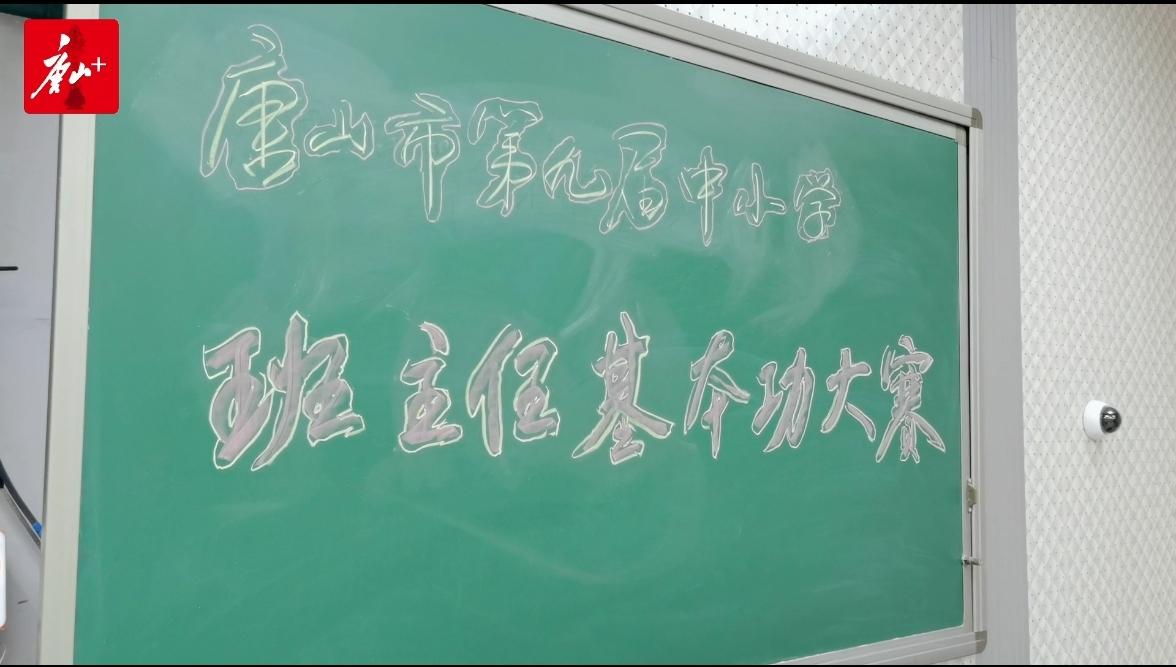 唐山+
唐山市第九届中小学
班主任基本功大赛